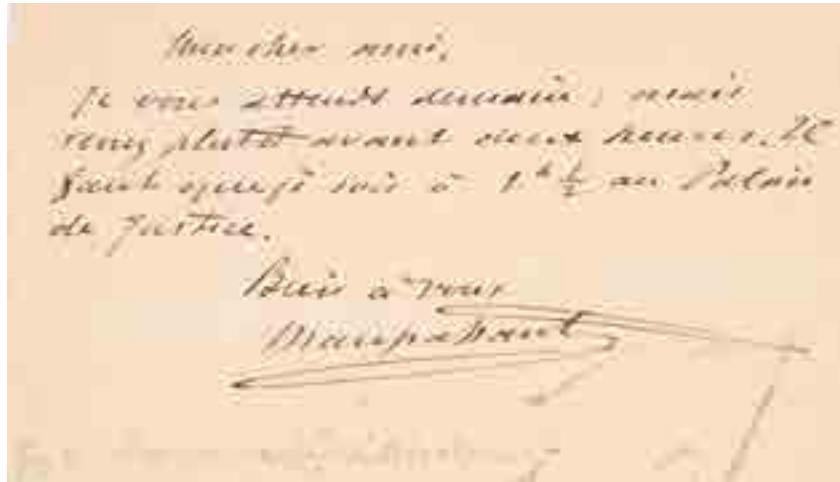 Mon cher ami,
Je vous attends demain; mais
venez plutôt avant deux heures. Il
faut que je sois à 1 h ½ au Palais
de Justice.
Bien à vous
Maupassant